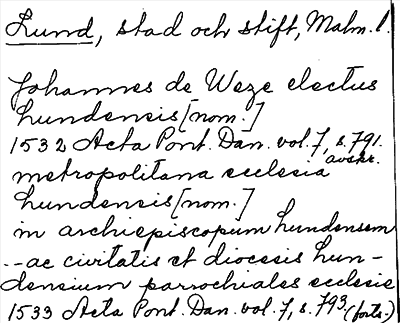 Lund, stad och stift, Malm. l.
Johannes de Weze electus
Lundensis [nom.]
1532 Acta Pont. Dan. vol. 7, s. 791.
avskr.
metropolitana ecclesia
Lundensis [nom.]
in archiepiscopum Lundensem
-- ac civitatis et diocesis Lun-
densium parrochiales ecclesie
1533 Acta Pont. Dan. vol. 7, s. 793 (forts.)